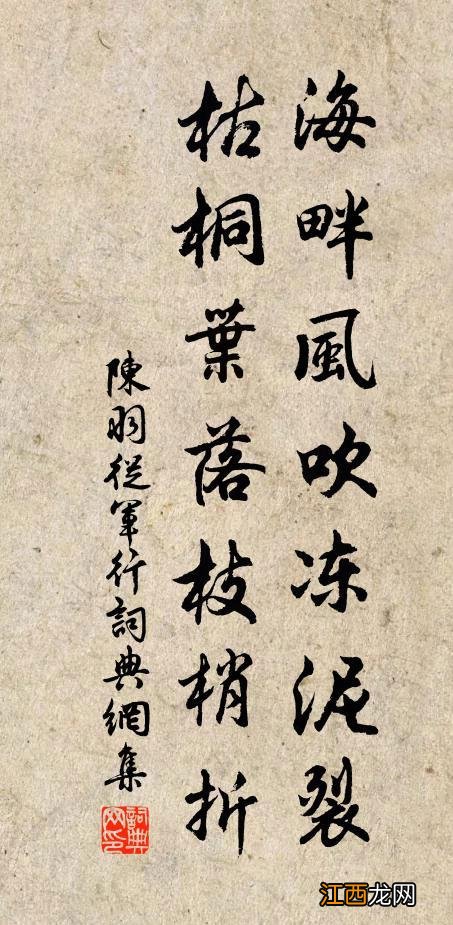 海畔風吹冻泥裂
枯桐葉落枝梢折
陳羽從軍行詞典網集
詞典网印
江西龙网